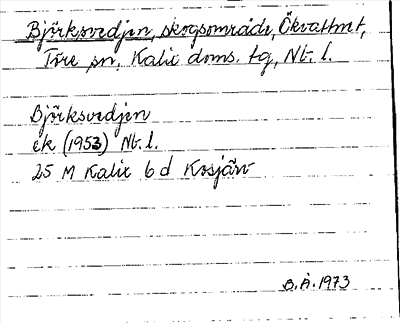 Björksvedjen, skogsområde, Ökvattnet,
Töre sn. Kalix doms. tg, Nb. l.
Björksvedjen
ek (1953) Nb. l.
25 M Kalix 6 d Kosjärv
B.Å. 1973